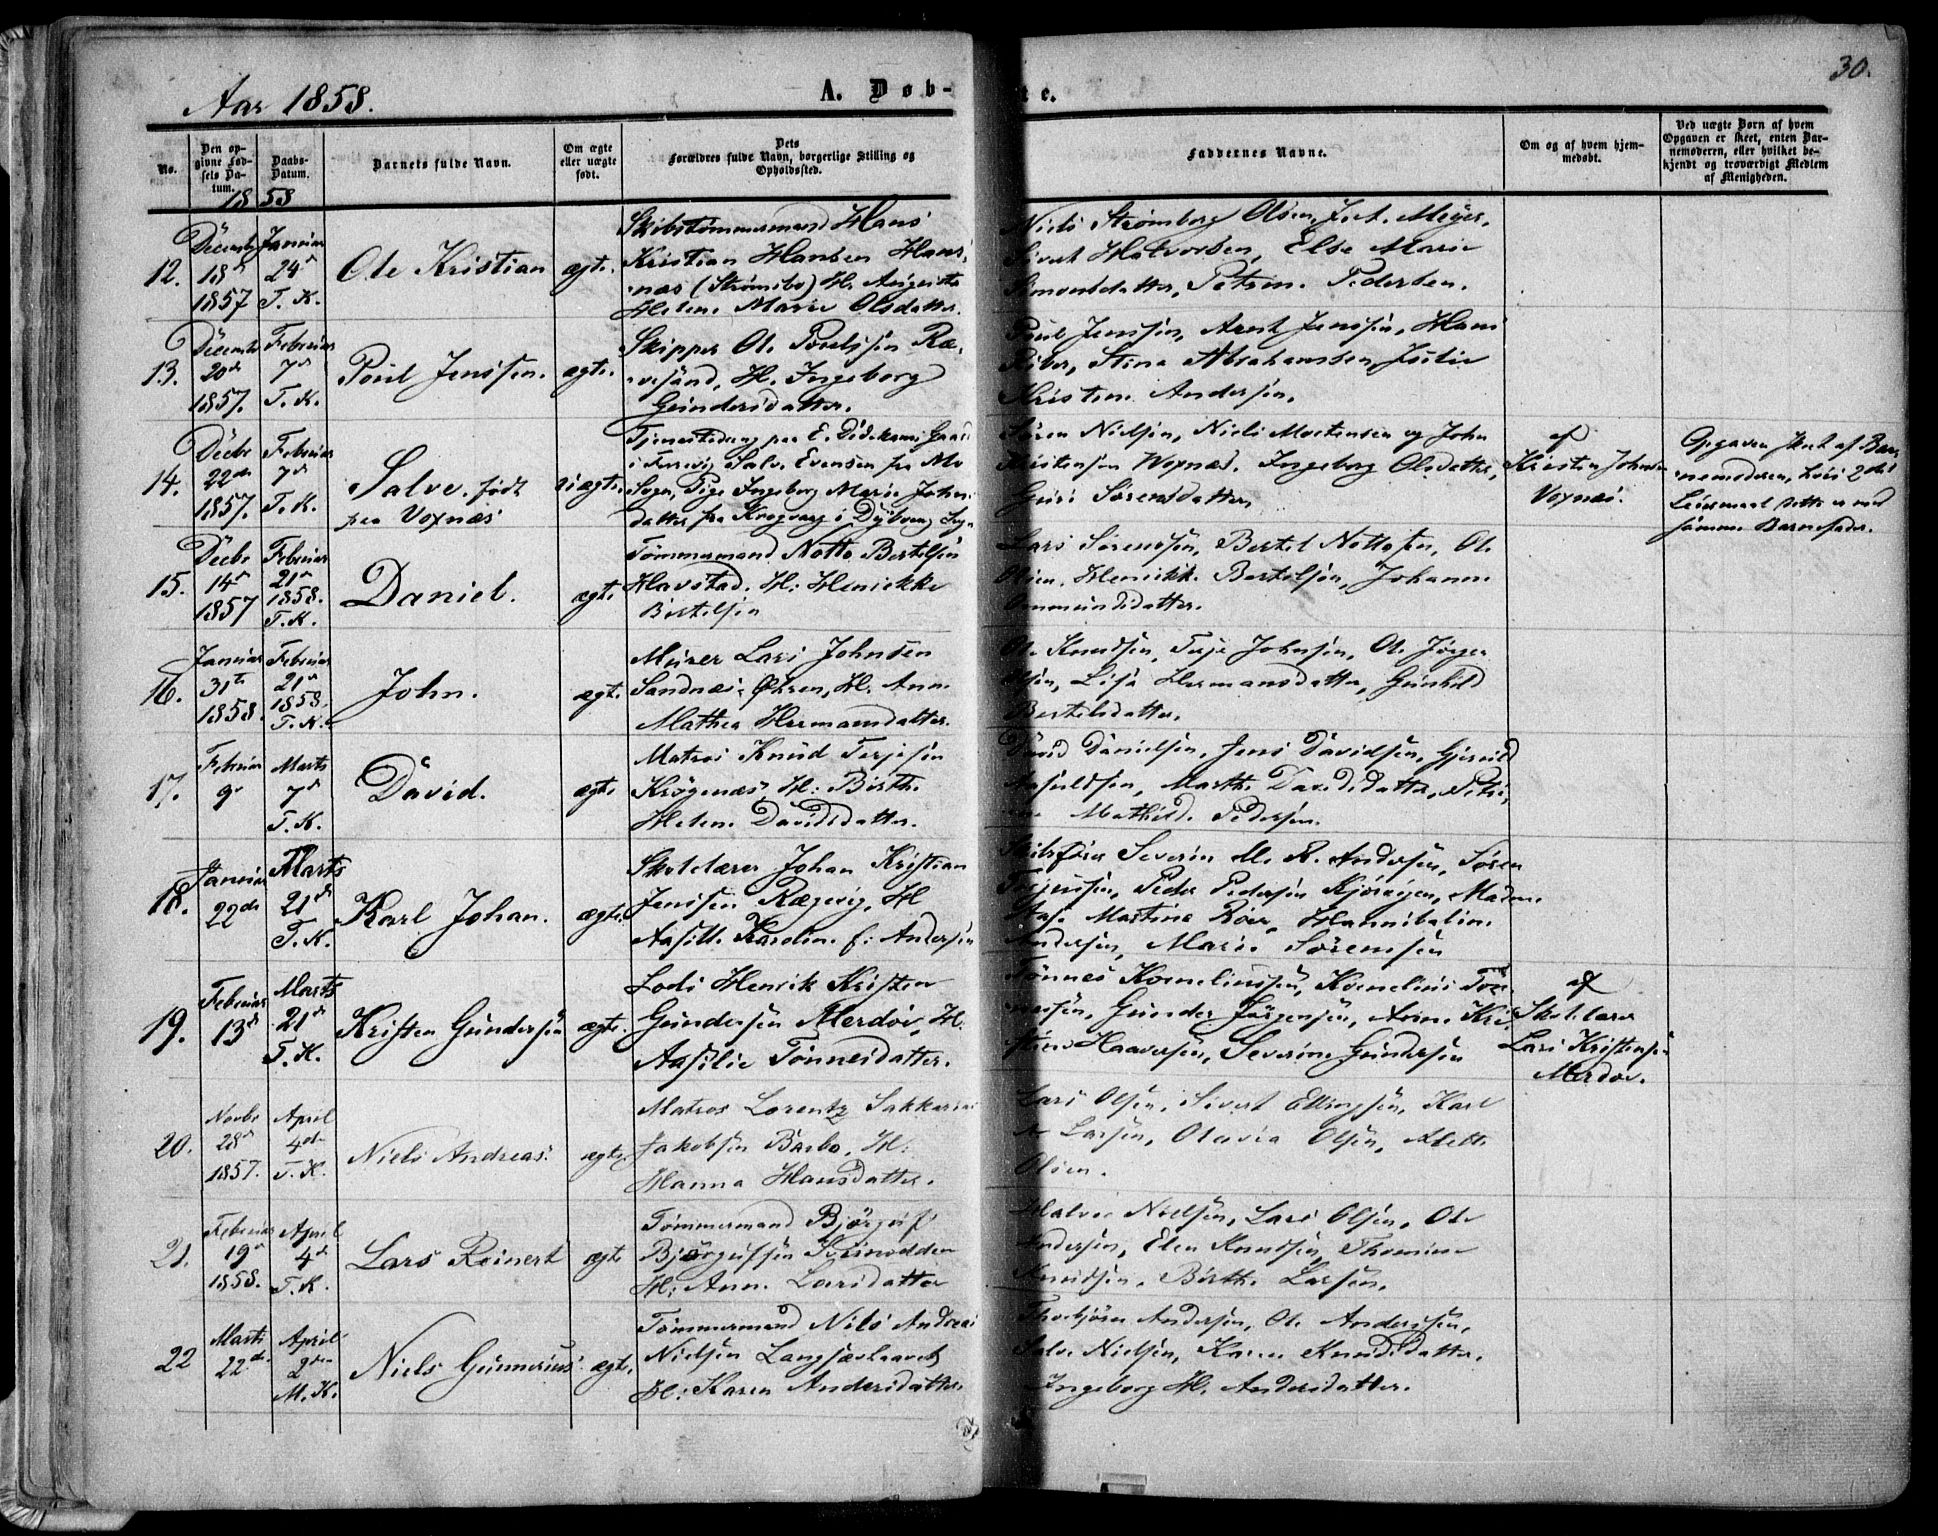 Aar 1858.
A. Døb-
te.
30.
No.
Den op-
givne Fød-
sels Da-
tum.
Daabs-
Datum.
Barnets fulde Navn.
Om ægte
eller uægte
født.
Dets
Forældres fulde Navn, borgerlige Stilling og
Opholdssted.
Faddernes Navne.
Om og af hvem hjem-
medøbt.
Ved uægte Børn af hvem
Opgaven er skeet, enten Bar-
nemoderen, eller hvilket be-
kjendt og troværdigt Medlem
af Menigheden.
1858
12.
Decemb
18d
1857
Januar
24d
T. K.
Ole Kristian
ægte.
Skibstømmermand Hans
Kristian Hansen Hans-
næs (Strømsbo) H. Augusta
Helene Marie Olsdatter.
Niels Strømberg Olsen, Meyer,
Sivert Halvorsen, Else Marie
Simonsdatter, Petrine Pedersen.
13.
Decemb
20d
1857.
Februar
7d
T. K.
Poul Jenssen.
ægte.
Skipper Ole Poulssen Ræ-
vesand, H. Ingeborg
Gundersdatter.
Poul Jenssen, Arent Jenssen, Hans
Riber, Stina Abrahamsen,
Kristine Andersen.
14.
Decbr
22de
1857.
Februar
7d
T. K.
Salve. født
paa Voxnæs
uægte.
Tjenestedreng paa E. Gaard
i Salve Evensen fra
Sogn, Pige Ingeborg Marie Johns-
datter fra i Dybvaag Sogn
Søren Nielsen, Niels Mortensen og John
Kristensen Voxnæs, Ingeborg Olsdatter,
Guri Sørensdatter,
af
Kristen Johnsen
Voxnæs.
Opgaven skeet af Bar-
nemoderen, hvis 2det
Leiermaal dette er med
samme Barnefader.
15.
Decbr
14d
1857
Februar
21d
1858.
T. K.
Daniel.
ægte.
Tømmermand Notto Bertelsen
Havstad. H: Henrikke
Bertelsen
Lars Sørenssen, Bertel Nottosen, Ole
Olsen, Henrikke Bertelsen, Johanne
Ommundsdatter.
16.
Januar
31te
1858.
Februar
21d
1858.
T. K.
John.
ægte.
Murer Lars Johnsen
Sandnæs, Øhren, H: Anne
Mathea Hermansdatter.
Ole Knudsen, Terje Johnsen, Ole Jørgen
Olsen, Lise Hermansdatter, Gunhild
Bertelsdatter.
17.
Februar
9d
Marts
7d
T. K.
David.
ægte.
Matros Knud Terjesen
Krøgenæs, H: Birthe
Helene Davidsdatter.
David Danielsen, Jens Davidsen,
Marthe Davidsdatter, Petri-
ne Mathilde Pedersen.
18.
Januar
22de
Marts
21d
T. K.
Karl Johan.
ægte.
Skolelærer Johan Kristian
Jenssen Rægevig, H
Aasille Karoline f: Andersen
Skibsfører Severin M. R. Andersen, Søren
Terjussen, Peder Pedersen, Madme
Martina, Hannibaline
Andersen, Marie Sørenssen
19.
Februar
13d
Marts
21d
T. K.
Kristen Gundersen
ægte.
Lods Henrik Kristen
Gundersen Merdøe, H.
Aasilie Tønnesdatter.
Tønnes Kornelinssen, Kornelius Tøn-
nessen, Gunder Jørgensen, Anne Kri-
stine Haaversen, Severine Gundersen
af
Skolelærer
Lars Kristensen
Merdøe.
20.
Novbr
28d
1857.
April
4de
T. K.
Niels Andreas
ægte.
Matros Lorentz Sakkarias
Jakobsen Barbo, H:
Hanna Hansdatter.
Lars Olsen, Sivert Ellingsen, Karl
Larsen, Olavia Olsen, Alette
Olsen.
21.
Februar
19d
1858.
April
4d
T. K.
Lars Reinert
ægte
Tømmermand Bjørguf
Bjørgufsen Steinodden
H: Anne Larsdatter
Halvor Nielsen, Lars Olsen, Ole
Andersen, Elen Knudsen, Thomine
Knudsen, Birthe Larsen.
22
Marts
22de
April
2den
M. K.
Niels Gunnerius
ægte.
Tømmermand Nils Andreas
Nielsen Langsævhaavet
H: Karen Andersdatter.
Thorbjørn Andersen, Ole Anderssen,
Salve Nielsen, Karen Knudsdatter,
Ingeborg H. Andersdatter.